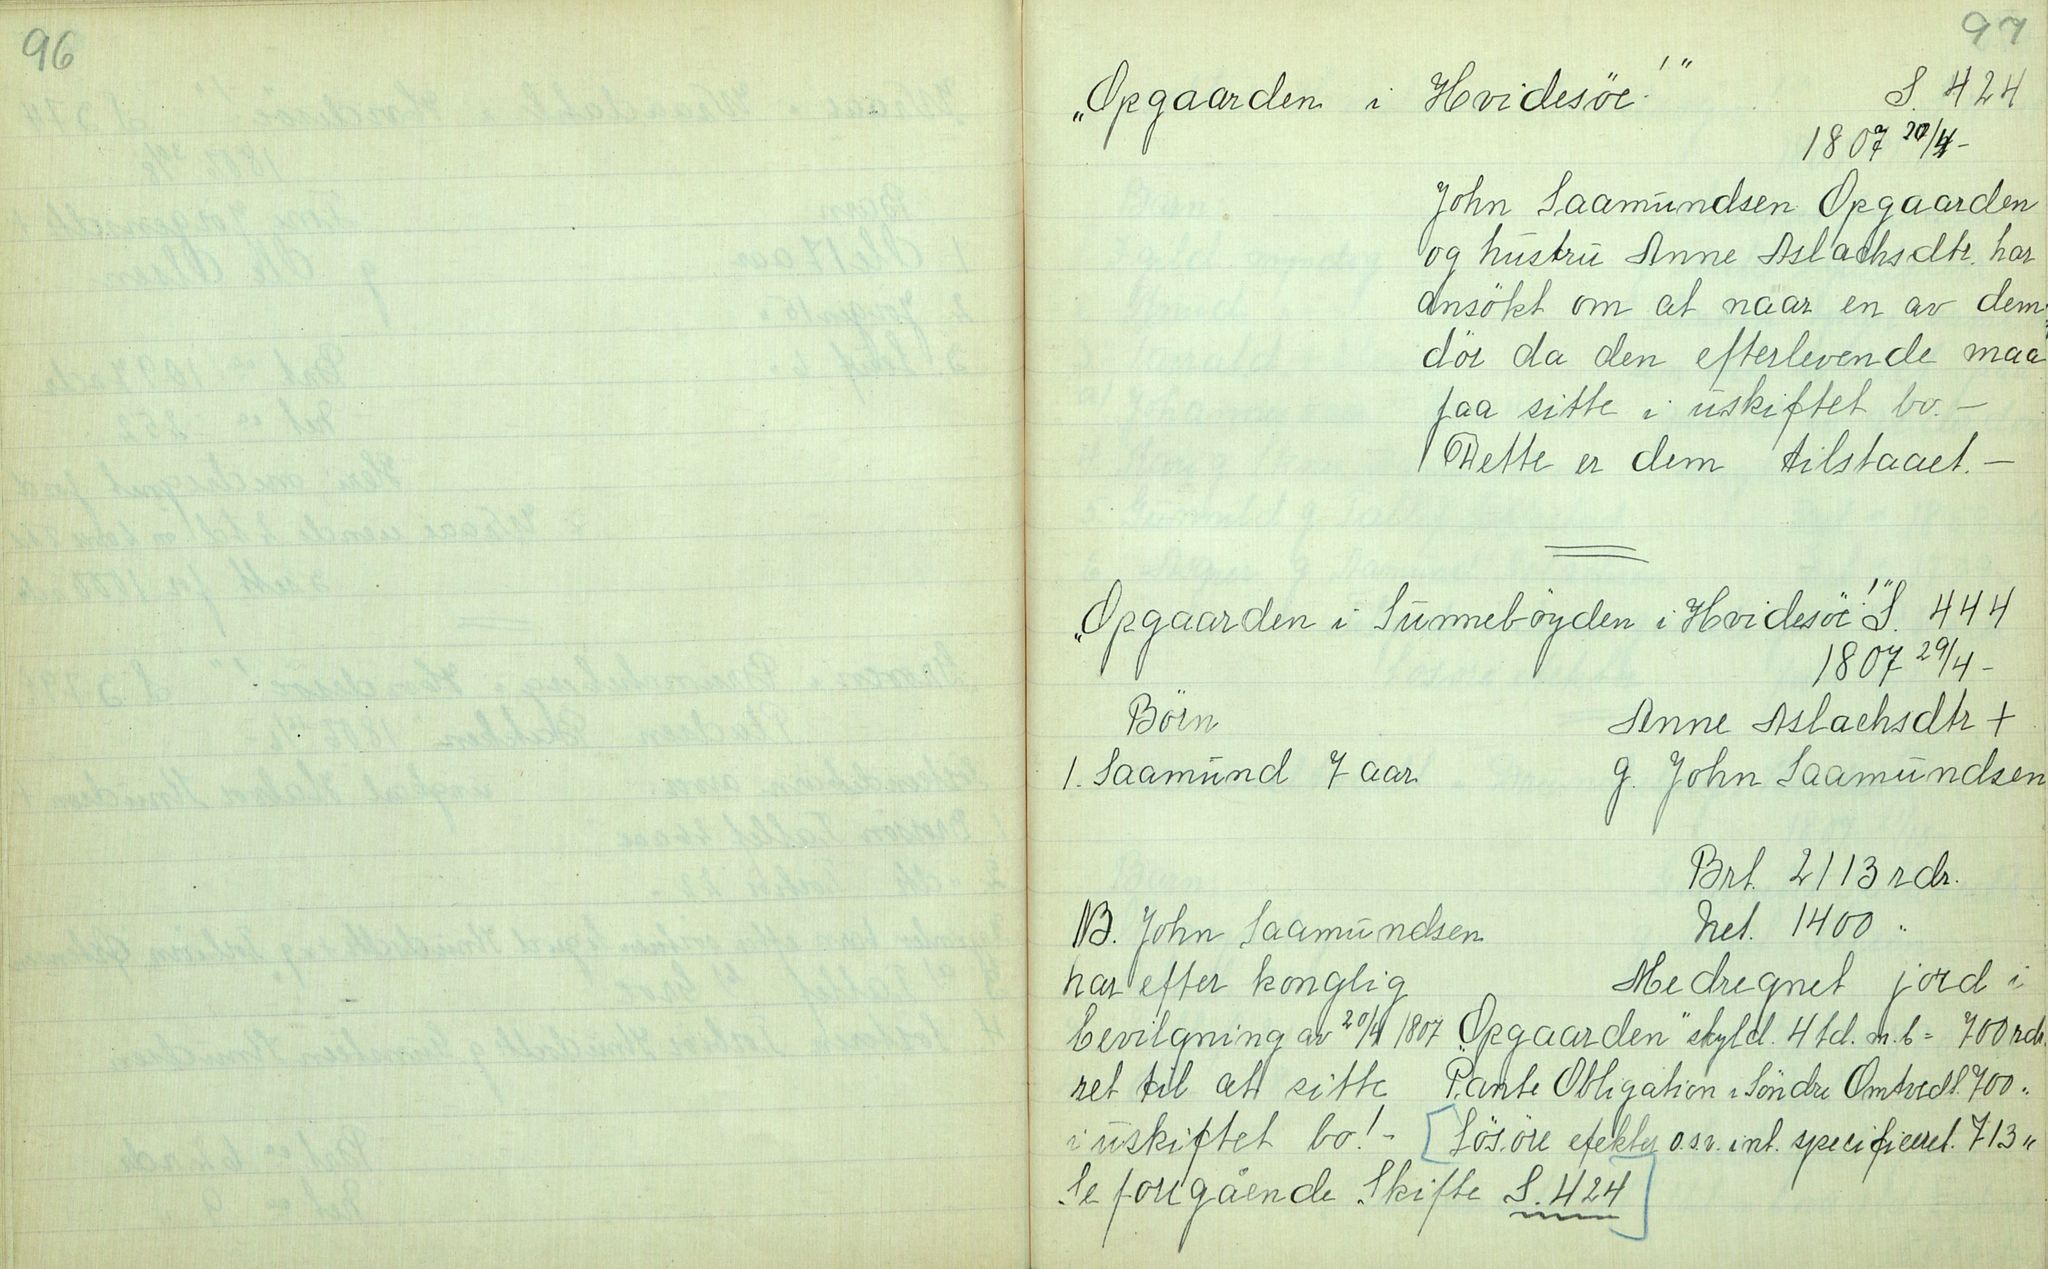 96
97
„Opgaarden i Hvidesöe!" S. 424
1807 20/4 -
John Saamundsen Opgaarden
og hustru Anne Aslachsdtr. har
ansökt om at naar en av dem
dör da den efterlevende maa
faa sitte i uskiftet bo. -
Dette er dem tilstaaet. -
„Opgaarden i Sunneböyden i Hvidesöe!" S. 444
1807 29/4 -
Börn Anne Aslachsdtr +
1. Saamund 7 aar g. John Saamundsen
Brt. 2113 rdr.
NB. John Saamundsen Net. 1400 "
har efter konglig Medregnet jord i
bevilgning av 20/4 1807 „Opgaarden" skyld. 4 td. m.b = 700 rdr.
ret til at sitte Pante Obligation i Söndre Omtvedt. 700 "
i uskiftet bo! - Lösöre efekter o.s.v. int. specificeret. 713 "
Se forrgående Skifte S. 424